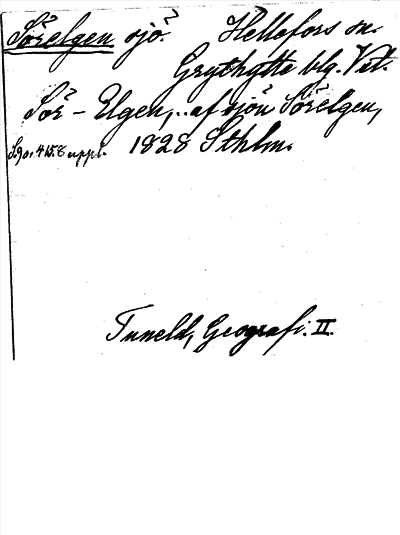 Sörelgen sjö? Hellefors sn.
Grythytte blg. Vstl.
Sör-Elgen, .. af sjön Sörelgen,
S. 90. 415. 8 uppl. 1828 Sthlm.
Tuneld, Geografi. II.